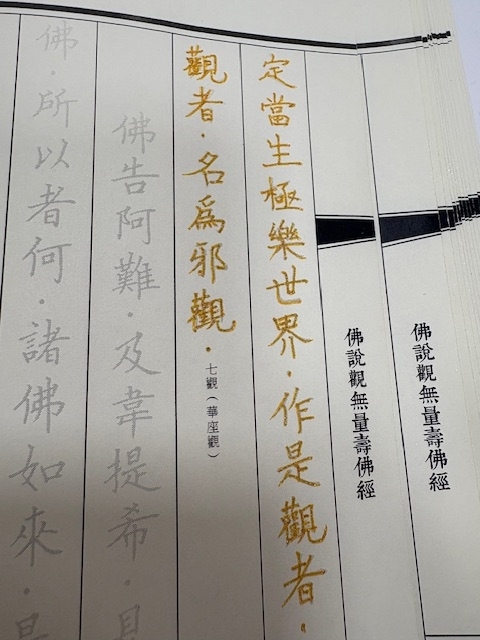 佛說觀無量壽佛經
佛說觀無量壽佛經
定當生極樂世界．作是觀者．
觀者．名爲邪觀．七觀（華座觀）
佛告阿難．及韋提希．
佛．所以者何．諸佛如來．